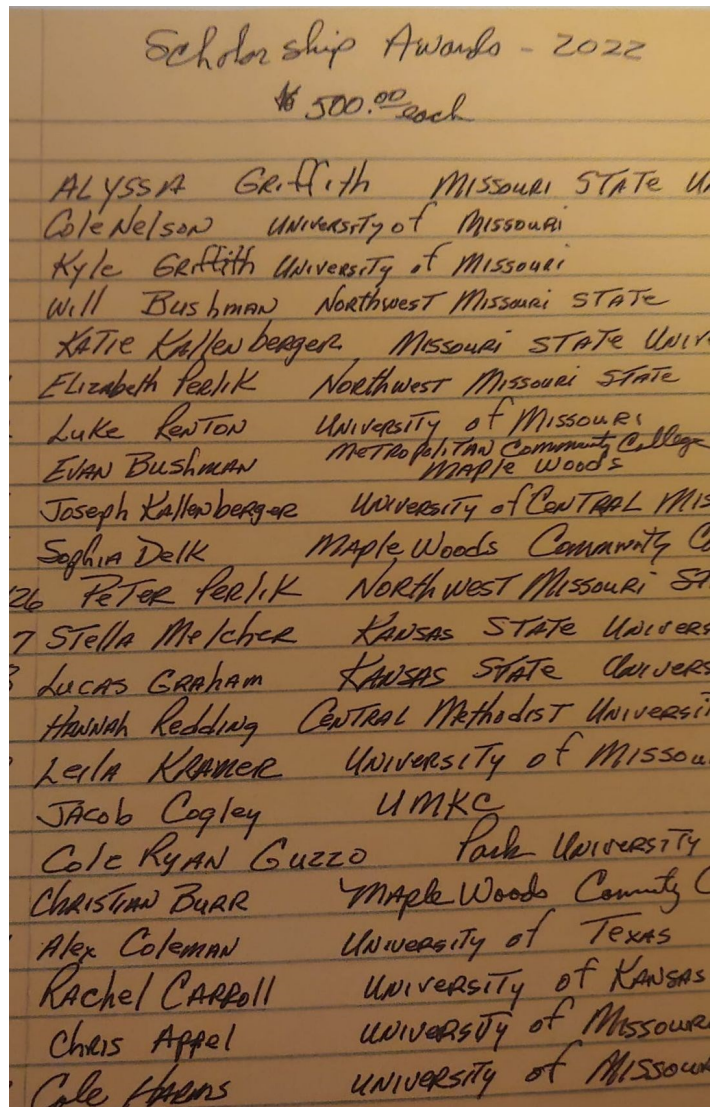 Scholarship Awards - 2022
$500.00 each
ALYSSA Griffith Missouri STATE
Cole Nelson University of Missouri
Kyle Griffith University of Missouri
Will Bushman Northwest Missouri STATE
KATIE Kallenberger Missouri STATE
Elizabeth Perlik Northwest Missouri STATE
Luke Renton University of Missouri
Evan Bushman Metropolitan Community College
Maple Woods
Joseph Kallenberger University of CENTRAL
Sophia Delk Maple Woods Community
26 Peter Perlik Northwest Missouri
7 Stella Melcher Kansas STATE
Lucas Graham Kansas STATE
Hannah Redding CENTRAL Methodist
Leila Kramer University of
Jacob Cogley UMKC
Cole Ryan Guzzo Park University
Christian Burr Maple Woods
Alex Coleman University of Texas
Rachel Carroll University of Kansas
Chris Appel University of Missouri
Cole Harms University of Missouri